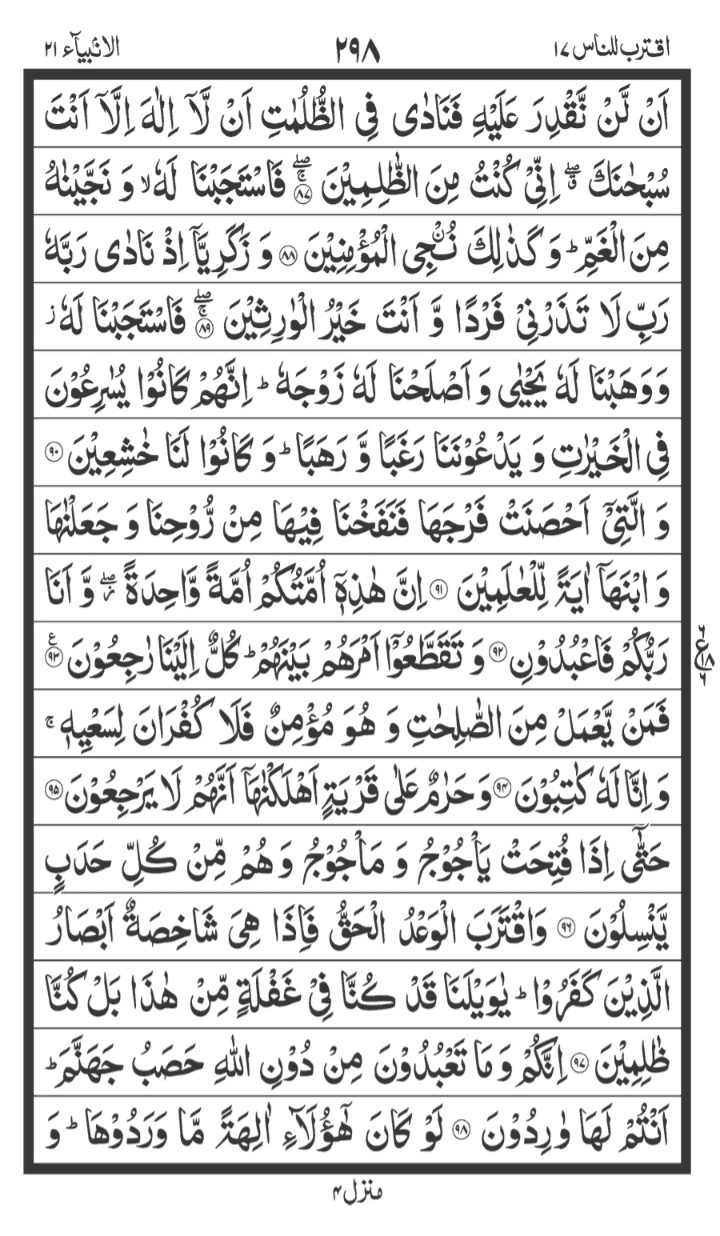 اقترب للناس ١٧ ٢٩٨ الانبیآء ٢١
اَنْ لَّنْ نَّقْدِرَ عَلَیْهِ فَنَادٰی فِی الظُّلُمٰتِ اَنْ لَّاۤ اِلٰهَ اِلَّاۤ اَنْتَ
سُبْحٰنَكَ ۖۗ اِنِّیْ كُنْتُ مِنَ الظّٰلِمِیْنَ ۚۖ ﴿٨٧﴾ فَاسْتَجَبْنَا لَهٗ ۙ وَ نَجَّیْنٰهُ
مِنَ الْغَمِّ ؕ وَ كَذٰلِكَ نُـْۨجِی الْمُؤْمِنِیْنَ ﴿٨٨﴾ وَ زَكَرِیَّاۤ اِذْ نَادٰی رَبَّهٗ
رَبِّ لَا تَذَرْنِیْ فَرْدًا وَّ اَنْتَ خَیْرُ الْوٰرِثِیْنَ ۚۖ ﴿٨٩﴾ فَاسْتَجَبْنَا لَهٗ ؗ
وَ وَهَبْنَا لَهٗ یَحْیٰی وَ اَصْلَحْنَا لَهٗ زَوْجَهٗ ؕ اِنَّهُمْ كَانُوْا یُسٰرِعُوْنَ
فِی الْخَیْرٰتِ وَ یَدْعُوْنَنَا رَغَبًا وَّ رَهَبًا ؕ وَ كَانُوْا لَنَا خٰشِعِیْنَ ﴿٩٠﴾
وَ الَّتِیْۤ اَحْصَنَتْ فَرْجَهَا فَنَفَخْنَا فِیْهَا مِنْ رُّوْحِنَا وَ جَعَلْنٰهَا
وَ ابْنَهَاۤ اٰیَةً لِّلْعٰلَمِیْنَ ﴿٩١﴾ اِنَّ هٰذِهٖۤ اُمَّتُكُمْ اُمَّةً وَّاحِدَةً ۖؗ وَّ اَنَا
رَبُّكُمْ فَاعْبُدُوْنِ ﴿٩٢﴾ وَ تَقَطَّعُوْۤا اَمْرَهُمْ بَیْنَهُمْ ؕ كُلٌّ اِلَیْنَا رٰجِعُوْنَ ﴿٩٣﴾ ع
٦ ع ١٨ ٦
فَمَنْ یَّعْمَلْ مِنَ الصّٰلِحٰتِ وَ هُوَ مُؤْمِنٌ فَلَا كُفْرَانَ لِسَعْیِهٖ ۚ
وَ اِنَّا لَهٗ كٰتِبُوْنَ ﴿٩٤﴾ وَ حَرٰمٌ عَلٰی قَرْیَةٍ اَهْلَكْنٰهَاۤ اَنَّهُمْ لَا یَرْجِعُوْنَ ﴿٩٥﴾
حَتّٰۤی اِذَا فُتِحَتْ یَاْجُوْجُ وَ مَاْجُوْجُ وَ هُمْ مِّنْ كُلِّ حَدَبٍ
یَّنْسِلُوْنَ ﴿٩٦﴾ وَاقْتَرَبَ الْوَعْدُ الْحَقُّ فَاِذَا هِیَ شَاخِصَةٌ اَبْصَارُ
الَّذِیْنَ كَفَرُوْا ؕ یٰوَیْلَنَا قَدْ كُنَّا فِیْ غَفْلَةٍ مِّنْ هٰذَا بَلْ كُنَّا
ظٰلِمِیْنَ ﴿٩٧﴾ اِنَّكُمْ وَ مَا تَعْبُدُوْنَ مِنْ دُوْنِ اللّٰهِ حَصَبُ جَهَنَّمَ ؕ
اَنْتُمْ لَهَا وٰرِدُوْنَ ﴿٩٨﴾ لَوْ كَانَ هٰۤؤُلَآءِ اٰلِهَةً مَّا وَرَدُوْهَا ؕ وَ
منزل ۴